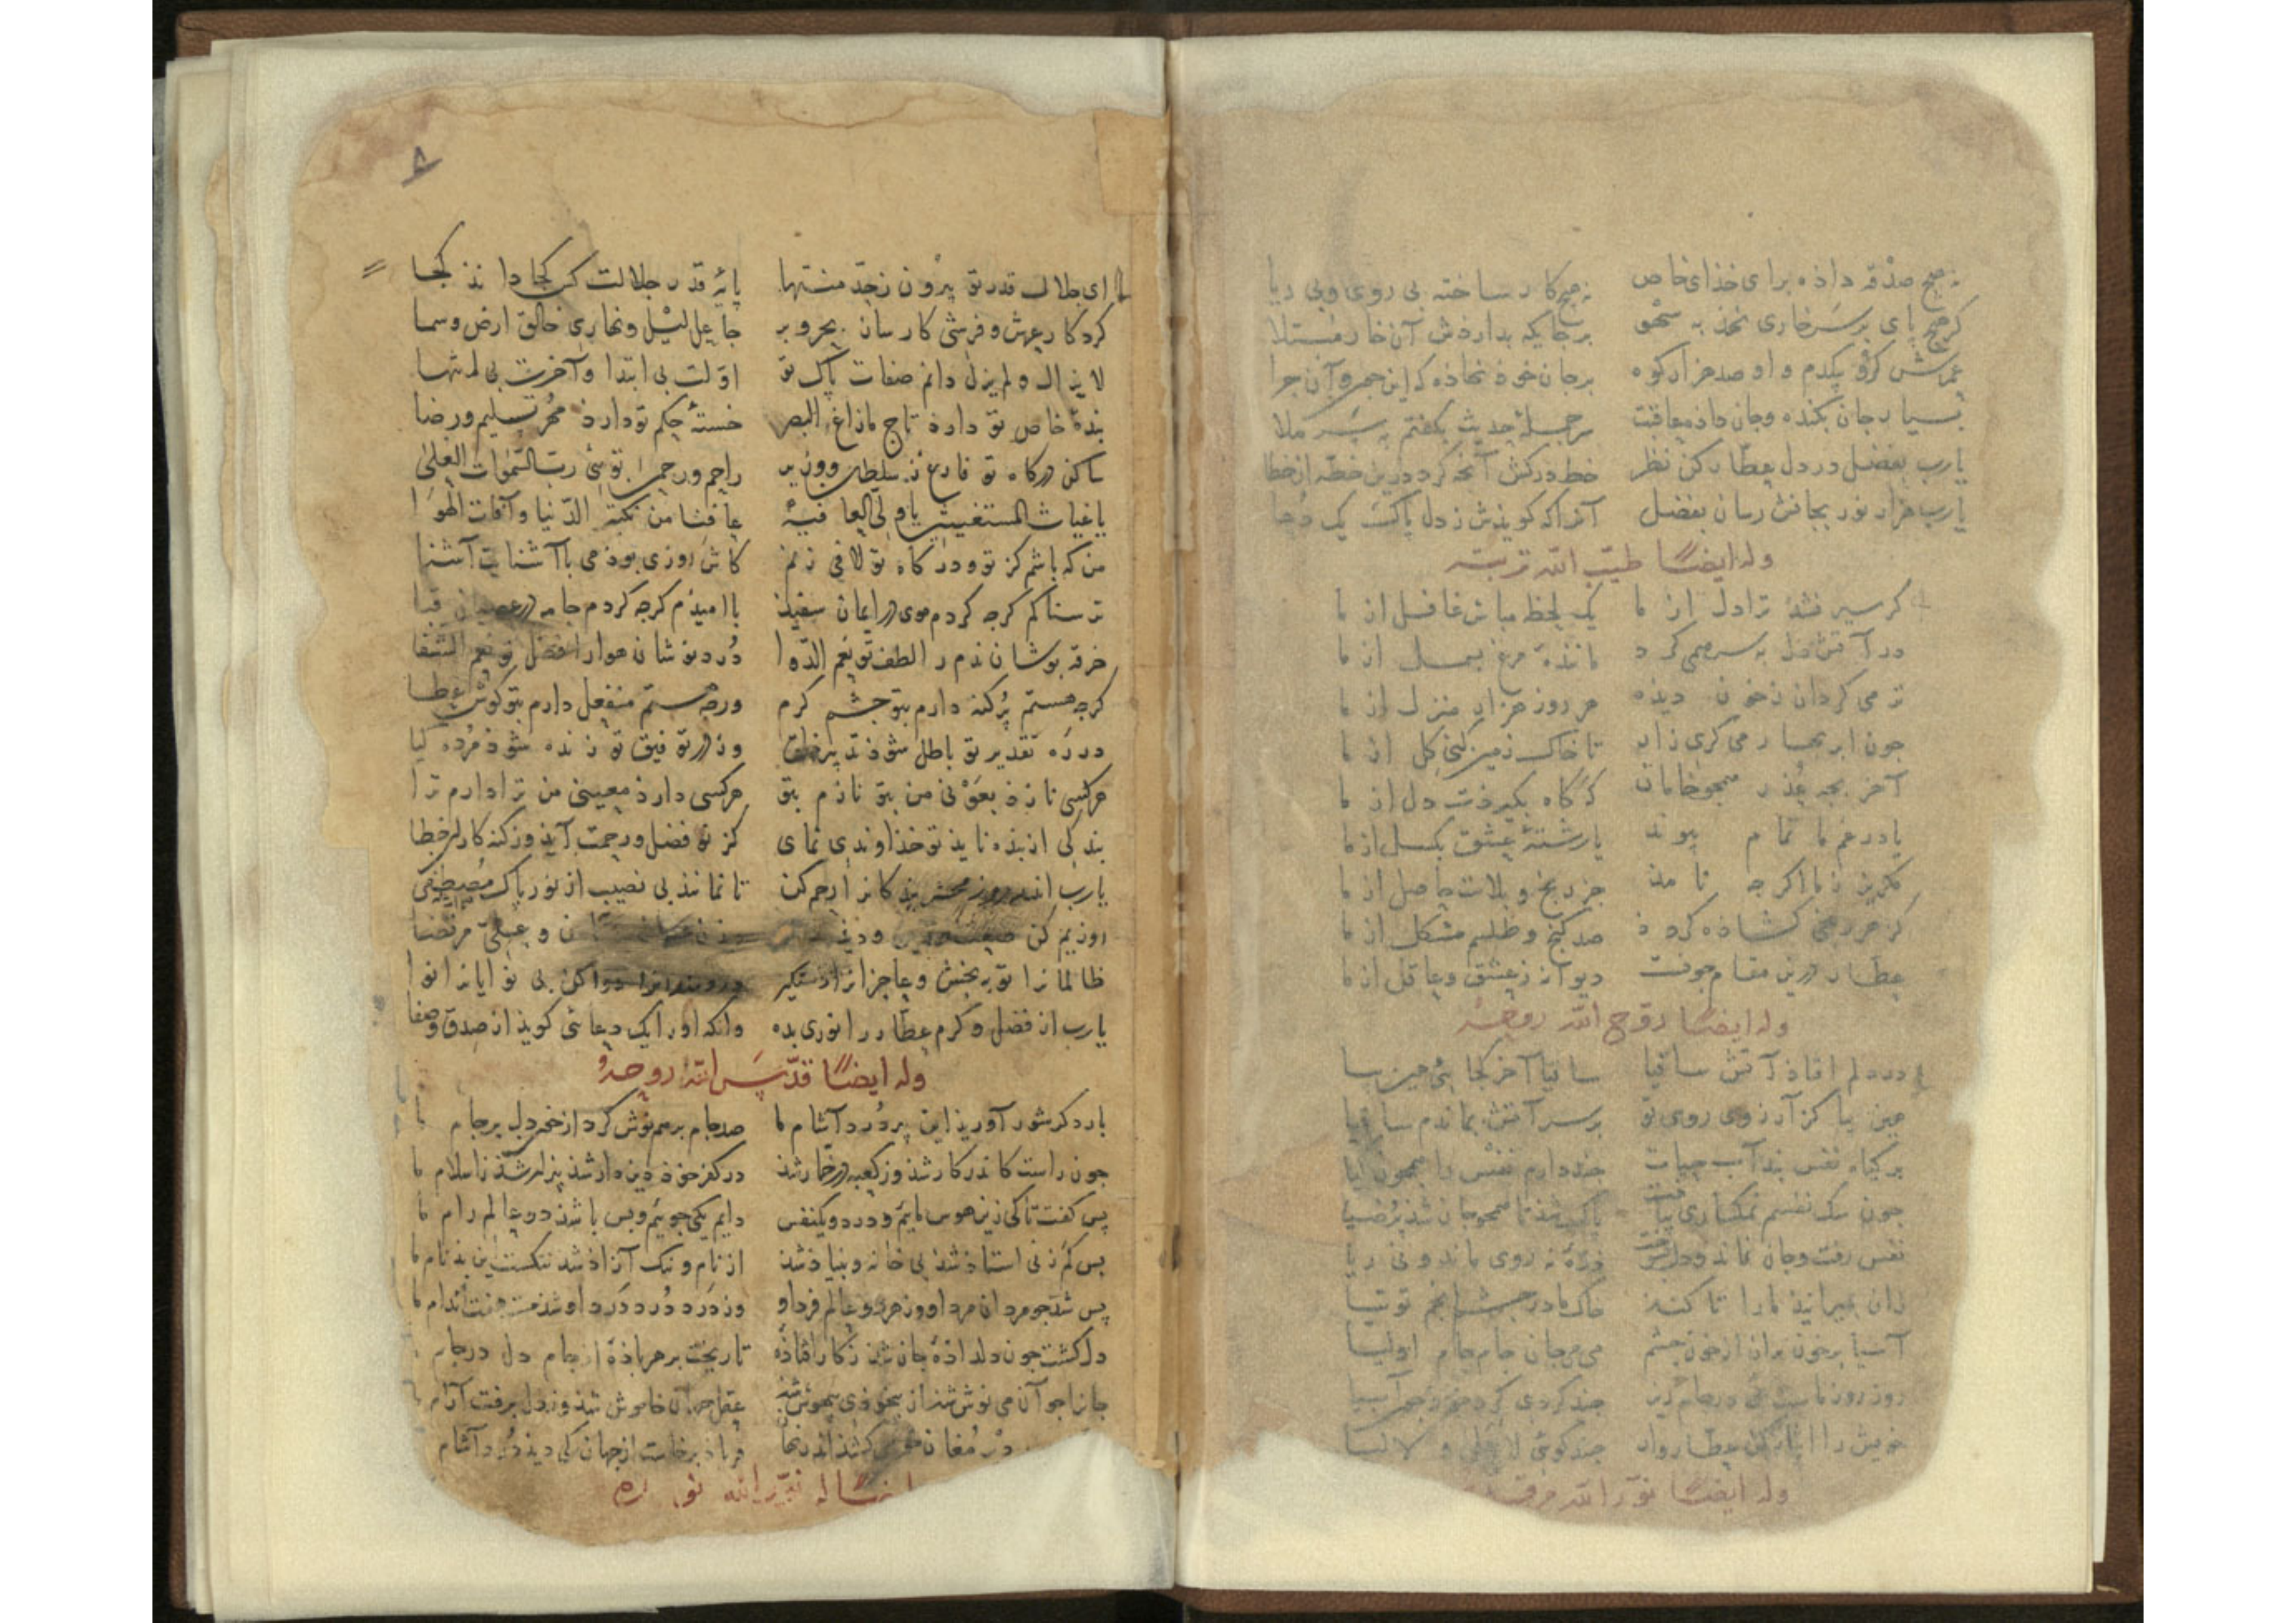 نه هیچ صدقه داذه برای خذای خاص نه هیچ کار ساخته بی روی و بی ریا
کر هیچ پای بر سر خاری نهذ به سهو برجایکه بدارذش آن خار مبتلا
برجان خوذ نهاذه که این جمر و آن جرا
بسیار جان بکنده وجان داذه عاقبت سر جملهٔ حدیث بکفتم بر ملا
یارب بفضل در دل عطار کن نظر خط درکش آنچه کرد درین خطه از خطا
یارب هزار نور بجانش رسان بفضل آنرا که کویذش ز دل پاکت یک دعا
وله ایضًا طیّب الله تربته
کر سیر نشذ ترا دل از ما یک لحظه مباش غافل از ما
در آتش دل بسر همی کرد مانندهٔ مرغ بسمل از ما
تر می کردان زخون دیذه هر روز هزار منزل از ما
جون ابر بهار می کری زار تا خاک زمین کنی کل از ما
آخر بجه عذر همجو خامان که کاه بکیرذت دل از ما
یا در غم ما تمام پیوند یا رشتهٔ عشق بکسل از ما
مکریز ز ما اکرجه نامذ جز رنج و بلات حاصل از ما
کز هر رنجی کشاذه کردذ صد کنج و طلسم مشکل از ما
عطار درین مقام جونست دیوانه ز عشق و عاقل از ما
وله ایضًا روّح الله روحه
در دلم افتاذ آتش ساقیا ساقیا آخر کجائی هین بیا
هین بیا کز آرزوی روی تو بر سر آتش بماندم ساقیا
بر کیاه نفس بند آب حیات جند دارم نفس را همجون کیا
جون سک نفسم نمکساری بیافت پاک شذ تا همجو جان شذ پر ضیا
نفس رفت و جان نماند و دل بسوخت ذرهٔ نه روی ماند و نی ریا
زان بمیرانیذ مارا تا کنند خاک ما در جشم انجم توتیا
آسیا برخون بران از خون جشم می جان جام جام اولیا
روز روز ماست می در جام ریز جند کردی کرد خوذ جون آسیا
خویش را ایثار کن عطاروار جند کوئی لا علی و لا لیا
وله ایضًا نوّر الله مرقده
۸
ای جلال قدر تو بیرون زحدّ منتها پایهٔ قدر جلالت کس کجا داند کجا
کردکار عرش و فرشی کارسان بحر و بر جاعل لیل و نهاری خالق ارض و سما
لا یزال و لم یزل دانم صفات پاک تو اوّلت بی ابتدا و آخرت بی انتها
بندهٔ خاص تو دارد تاج مازاغ البصر خستهٔ حکم تو دارذ مهر تسلیم و رضا
ساکن درکاه تو فارغ ز سلطان و وزیر راحم و رحمن توئی ربّ السّموات العلی
یا غیاث المستغیث یا ولیّ العافیه عافنا من نکبة الدّنیا وآفات الهوا
من که باشم کز تو و درکاه تو لافی زنم کاش روزی بوذمی با آشنایت آشنا
ترسناکم کرجه کردم موی در ایمان سفیذ با امیذم کرجه کردم جامه در عصیان قبا
خرقه پوشان ندم را لطف تو نعم الدّوا دُرد نوشان هوا را فضل تو نعم الشّفا
کرجه هستم پُر کنه دارم بتو جشم کرم ورجه هستم منفعل دارم بتو کوش عطا
در ره تقدیر تو باطل شوذ تدبیر خلق وز در توفیق تو زنده شوذ مرده کیا
هرکسی نازذ بعونی من بتو نازم بتو هرکسی دارذ معینی من ترا دارم ترا
بندکی از بنده ناید تو خذاوندی نمای کز تو فضل و رحمت آید وز کنه کاران خطا
یارب اندر روز محشر بندکانرا رحم کن تا نماند بی نصیب از نور پاک مصطفی
روزیم کن و علی مرتضا
ظالمانرا تو ببخش و عاجزانرا دستکیر دردمندانرا دوا کن بی نوایانرا نوا
یارب از فضل و کرم عطّار را نوری بده وانکه او را یک دعائی کویذ از صدق و صفا
وله ایضًا قدّس الله روحهُ
بار دکر شور آوریذ این پیر دُرد آشام ما صد جام برهم نوش کرد از خون دل برجام ما
جون راست کاندر کار شذ وز کعبه در خمار شذ در کفر خوذ دین دار شذ بیزار شذ ز اسلام ما
پس کفت تا کی زین هوس مائیم و درد و یکنفس دایم یکی جوئیم و بس باشذ دو عالم رام ما
بس کم زنی استاذ شذ بی خانه و بنیاذ شذ از نام و ننک آزاذ شذ نیکست این بذنام ما
پس شذ جو مردان مرد او وز هر دو عالم فرد او وز دَرد دُرد دَرد او شذ مست هفت اندام ما
دل کشت جون دلداذهٔ جان شذ ز کار افتاذهٔ تا ریخت بر هر باذهٔ از جام دل در جام
جانرا جو آن می نوش شذ از بیخوذی بیهوش شذ عقل خاموش شذ وز دل برفت آرام ما
فریاد برخاست از جهان کی دیذ دُرد آشام
ایضًا له نوّر الله